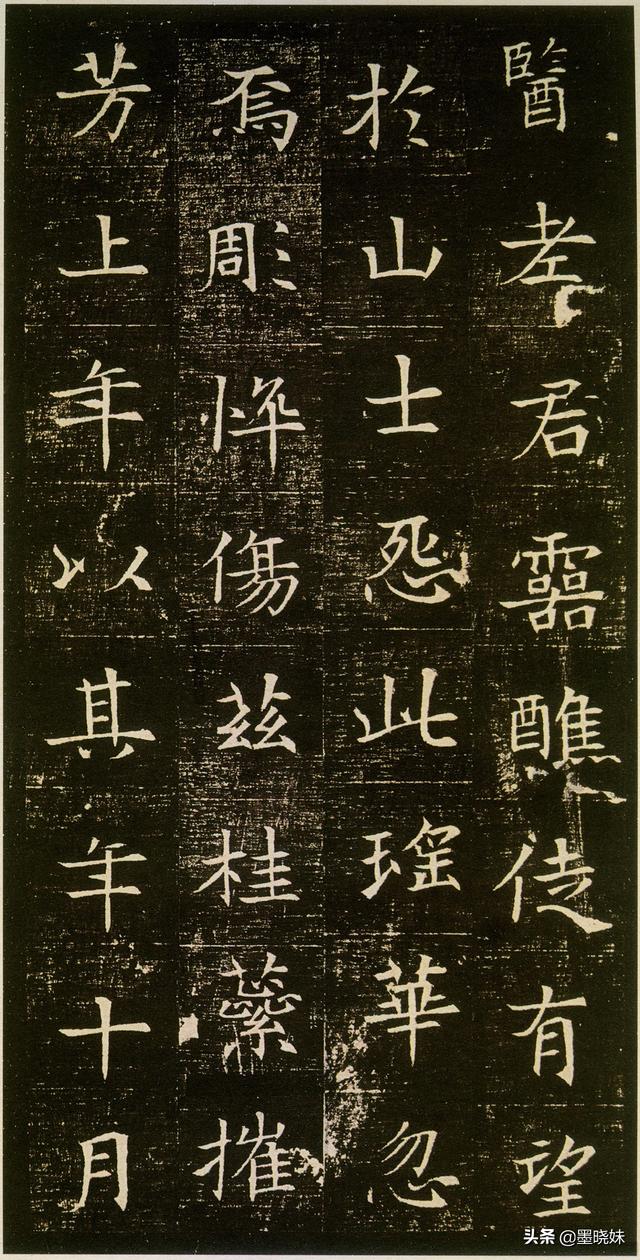 醫老君靈醮徒有望
於山士怨此瑤華忽
焉彫悴傷茲桂蘂摧
芳上年以其年十月
头条 @墨晓妹